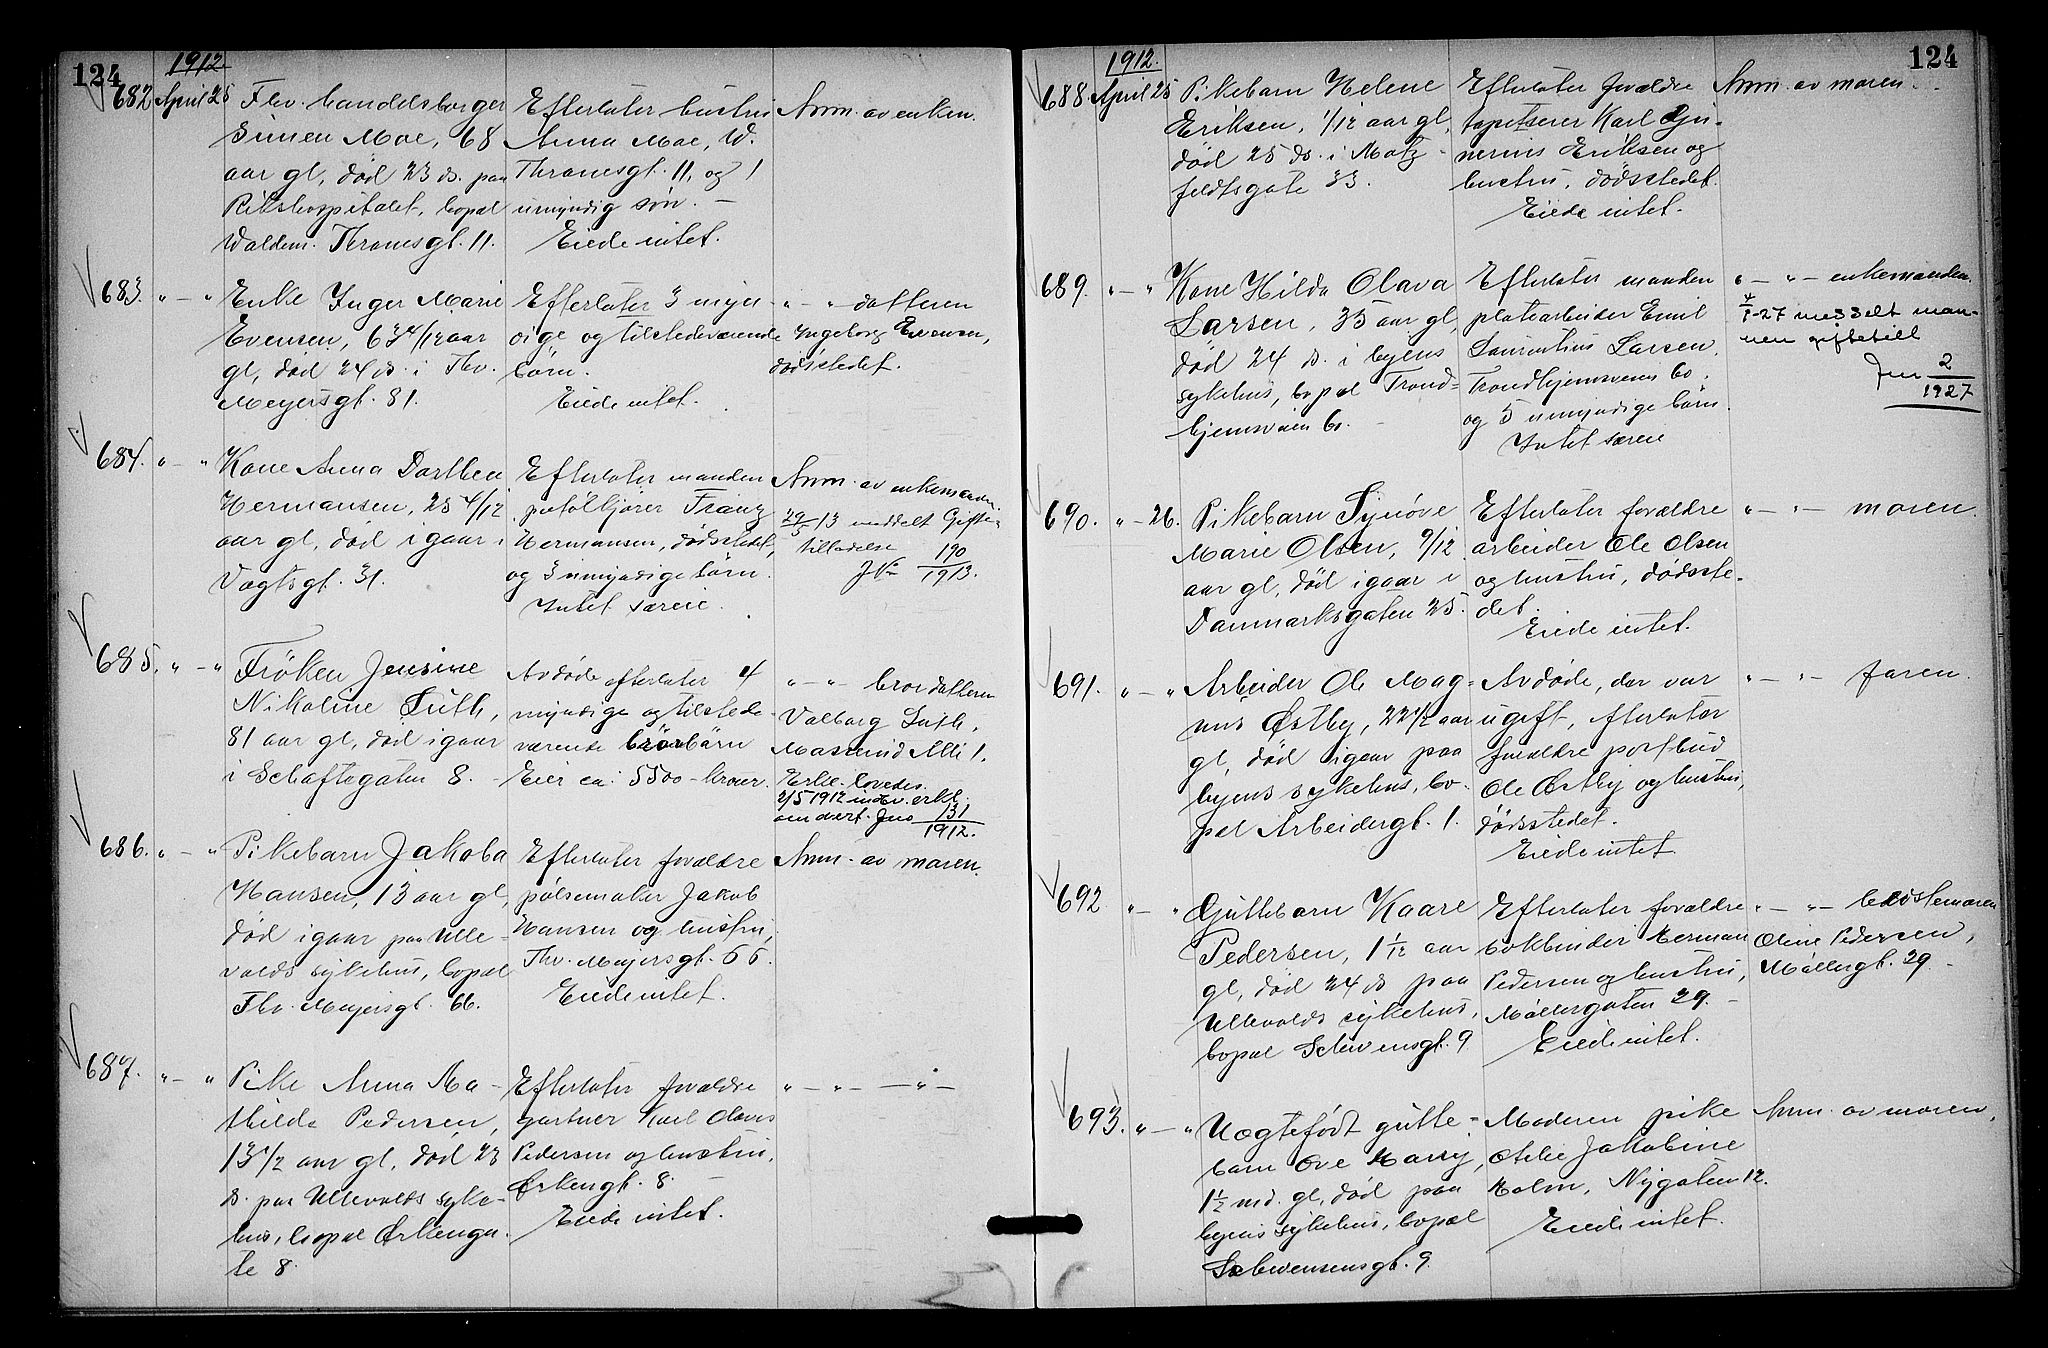 124
1912
682 April 25 Fhv. handelsborger
Simen Moe, 68
aar gl, död 23 ds. paa
Rikshospitalet, bopæl
Waldem. Thranesgt. 11.
Efterlater hustru
Anna Moe, W.
Thranesgt. 11, og 1
umyndig sön. –
Eiede intet.
Anm. av enken.
683. " – " Enke Inger Marie
Evensen, 63 4/12 aar
gl, död 24 ds. i Thv.
Meyersgt. 81.
Efterlater 3 myn-
dige og tilstedeværende
börn.
Eiede intet.
" – " – datteren
Ingeborg Evensen,
dödsstedet.
684. " – " Kone Anna Dorthea
Hermansen, 25 4/12
aar gl, död igaar i
Vogtsgt. 31.
Efterlater manden
Franz
Hermansen, dödsstedet,
og 3 umyndige börn.
Intet særeie.
Anm. av enkemanden
29/5-13 meddelt Gifte-
tilladelse
JNo 190/1913.
685. " – " Fröken Jensine
Nikoline Luth,
81 aar gl, död igaar
i Schaftegaten 8. –
Avdöde efterlater 4
myndige og tilstede-
værende brorbörn
Eier ca: 5500 – kroner.
" – " – brordatteren
Valborg Luth,
Erkl. lovedes.
2/5 1912 indlev. erkl.
om overt. Jno 131/1912.
686. " – " Pikebarn Jakoba
Hansen, 13 aar gl,
död igaar paa Ulle-
valds sykehus, bopæl
Thv. Meyersgt. 66.
Efterlater forældre
pölsemaker Jakob
Hansen og hustru,
Thv. Meyersgt. 66.
Eiede intet.
Anm. av moren.
687. " – " Pike Anna Ma-
thilde Pedersen,
13 1/2 aar gl, död 23
ds. paa Ullevolds syke-
hus, bopæl Örkenga-
te 8.
Efterlater forældre
gartner Karl Olaves
Pedersen og hustru,
Örkengt. 8. –
Eiede intet.
" – " – – " –
124
1912.
688. April 25 Pikebarn Helene
Eriksen, 1/12 aar gl,
död 25 ds. i Motz-
feldtsgate 33.
Efterlater forældre
tapetserer Karl
Eriksen og
hustru, dödsstedet.
Eiede intet.
Anm. av moren.
689. " – " Kone Hilda Olava
Larsen, 35 aar gl,
död 24 ds. i byens
sykehus, bopæl Trond-
hjemsveien 60. –
Efterlater manden
platearbeider Emil
Laurentius Larsen,
Trondhjemsveien 60,
og 5 umyndige börn.
Intet særeie
" – " – enkemanden.
4/1-27 meddelt man-
nen giftetill
Jnr 2/1927
690. " – 26. Pikebarn Synöve
Marie Olsen, 9/12
aar gl, död igaar i
Danmarksgaten 25.
Efterlater forældre
arbeider Ole Olsen
og hustru, dödsste-
det.
Eiede intet.
" – " – moren.
691. " – " Arbeider Ole Mag-
nus Östby, 22 1/2 aar
gl, död igaar paa
byens sykehus, bo-
pæl Arbeidergt. 1.
Avdöde, der var
ugift, efterlater
forældre postbud
Ole Östby og hustru,
dödsstedet.
Eiede intet
" – " – faren.
692. " – " Guttebarn Kaare
Pedersen, 1 1/12 aar
gl, död 24 ds paa
Ullevolds sykehus,
bopæl Schwensgt. 9
Efterlater forældre
bokbinder Herman
Pedersen og hustru,
Möllergaten 29. –
Eiede intet.
" – " – bedstemoren
Oline Pedersen,
Möllergt. 29. –
693. " – " Uegtefödt gutte-
barn Ove Harry,
1 1/2 md. gl, död paa
byens sykehus, bopæl
Schwensensgt. 9.
Moderen pike
Otelie Jakobine
Holm, Nygaten 12.
Eiede intet.
Anm. av moren.